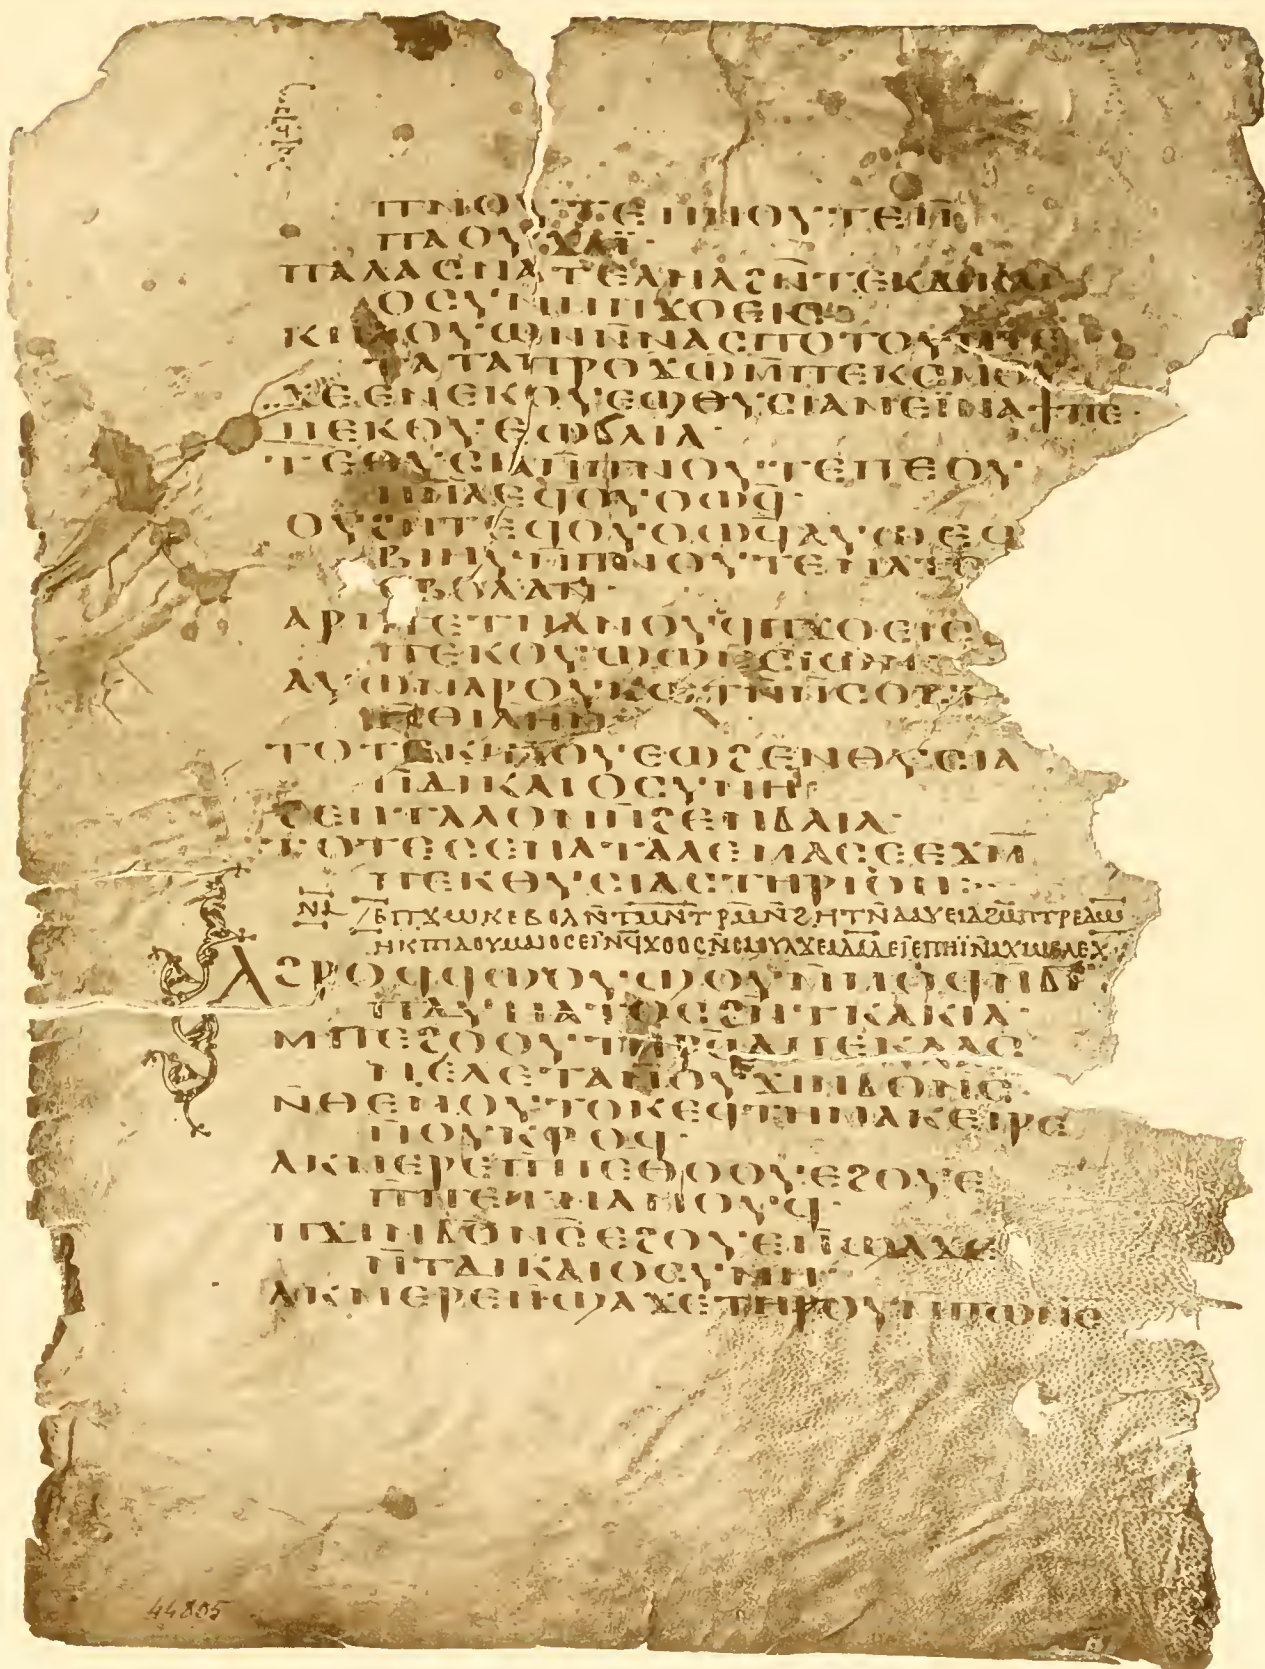 ⲡⲛⲟⲩⲧⲉ ⲡⲛⲟⲩⲧⲉ ⲙ̄
ⲡⲁⲟⲩϫⲁⲓ̈·
ⲡⲁⲗⲁⲥ ⲛⲁⲧⲉⲗⲏⲗ ϩⲛ̄ ⲧⲉⲕⲇⲓⲕⲁⲓ
ⲟⲥⲩⲛⲏ ⲡϫⲟⲉⲓⲥ
ⲕⲛⲁⲟⲩⲱⲛ ⲛ̄ⲛⲁⲥⲡⲟⲧⲟⲩ ⲛⲧⲉ
ⲧⲁⲧⲁⲡⲣⲟ ϫⲱ ⲙ̄ⲡⲉⲕⲥⲙⲟⲩ
ϫⲉ ⲉⲛⲉⲕⲟⲩⲉϣ ⲑⲩⲥⲓⲁ ⲛⲉⲓ̈ⲛⲁϯ ⲡⲉ·
ⲛⲉⲕⲟⲩⲉϣ ϭⲗⲓⲗ·
ⲧⲉⲑⲩⲥⲓⲁ ⲙ̄ⲡⲛⲟⲩⲧⲉ ⲡⲉ ⲟⲩ
ⲡⲛ̄ⲁ ⲉϥⲟⲩⲟϣϥ̄·
ⲟⲩϩⲏⲧ ⲉϥⲟⲩⲟϣϥ̄ ⲁⲩⲱ ⲉϥ
ⲑⲃ̄ⲃⲓⲏⲩ ⲙ̄ⲡⲛⲟⲩⲧⲉ ⲛⲁ
ⲉⲃⲟⲗ ⲁⲛ·
ⲁⲣⲓⲡⲉⲧⲛⲁⲛⲟⲩϥ ⲡϫⲟⲉⲓⲥ
ⲡⲉⲕⲟⲩⲱϣ ⲉⲥⲓⲱⲛ
ⲁⲩⲱ ⲙⲁⲣⲟⲩⲕⲱⲧ ⲛ̄ⲛ̄ⲥⲟⲃⲧ
ⲛ̄ⲑⲓⲗⲏⲙ
ⲧⲟⲧⲉ ⲕⲛⲁⲟⲩⲉϣ ϩⲉⲛⲑⲩⲥⲓⲁ
ⲛ̄ⲇⲓⲕⲁⲓⲟⲥⲩⲛⲏ
ⲟⲩⲧⲁⲗⲟ ⲙⲛ̄ ϩⲉⲛϭⲗⲓⲗ·
ⲧⲟⲧⲉ ⲥⲉⲛⲁⲧⲁⲗⲉ ⲙⲁⲥⲉ ⲉϫⲙ̄
ⲡⲉⲕⲑⲩⲥⲓⲁⲥⲧⲏⲣⲓⲟⲛ:
ⲛ̄ⲁ̄ ⲉⲡϫⲱⲕ ⲉⲃⲟⲗ ⲛ̄ⲧⲙⲛ̄ⲧⲣⲙ̄ⲛ̄ϩⲏⲧ ⲛ̄ⲇⲁⲩⲉⲓⲇ ϩⲙ̄ⲡⲧⲣⲉⲇⲱ
ⲏⲕ ⲡⲓⲇⲟⲩⲙⲁⲓⲟⲥ ⲉⲓ ⲛϥ̄ϫⲟⲟⲥ ⲛ̄ⲥⲁⲟⲩⲗ ϫⲉ ⲁⲇⲁⲇ ⲉⲓ ⲉⲡⲏⲓ̈ ⲛⲁϩⲓⲙⲉⲗⲉⲭ·
ⲁϩⲣⲟϥ ϥϣⲟⲩϣⲟⲩ ⲙ̄ⲙⲟϥ ⲛ̄ϭⲓ
ⲡⲇⲩⲛⲁⲧⲟⲥ ϩⲛ̄ ⲧⲕⲁⲕⲓⲁ·
ⲙⲡⲉϩⲟⲟⲩ ⲧⲏⲣϥ̄ ⲁⲡⲉⲕⲗⲁⲥ
ⲙⲉⲗⲉⲧⲁ ⲛⲟⲩϫⲓⲛϭⲟⲛⲥ̄
ⲛ̄ⲑⲉ ⲛⲟⲩⲧⲟⲕ ⲉϥⲧⲏⲙ ⲁⲕⲉⲓⲣⲉ
ⲛⲟⲩⲕⲣⲟϥ·
ⲁⲕⲙⲉⲣⲉ ⲙ̄ⲡⲉⲑⲟⲟⲩ ⲉϩⲟⲩⲉ
ⲙ̄ⲡⲉⲧⲛⲁⲛⲟⲩϥ·
ⲡϫⲓⲛϭⲟⲛⲥ̄ ⲉϩⲟⲩⲉ ⲛ̄ϣⲁϫⲉ
ⲛ̄ⲧⲇⲓⲕⲁⲓⲟⲥⲩⲛⲏ·
ⲁⲕⲙⲉⲣⲉ ⲛ̄ϣⲁϫⲉ ⲧⲏⲣⲟⲩ ⲙ̄ⲡⲱⲙⲥ̄
44805